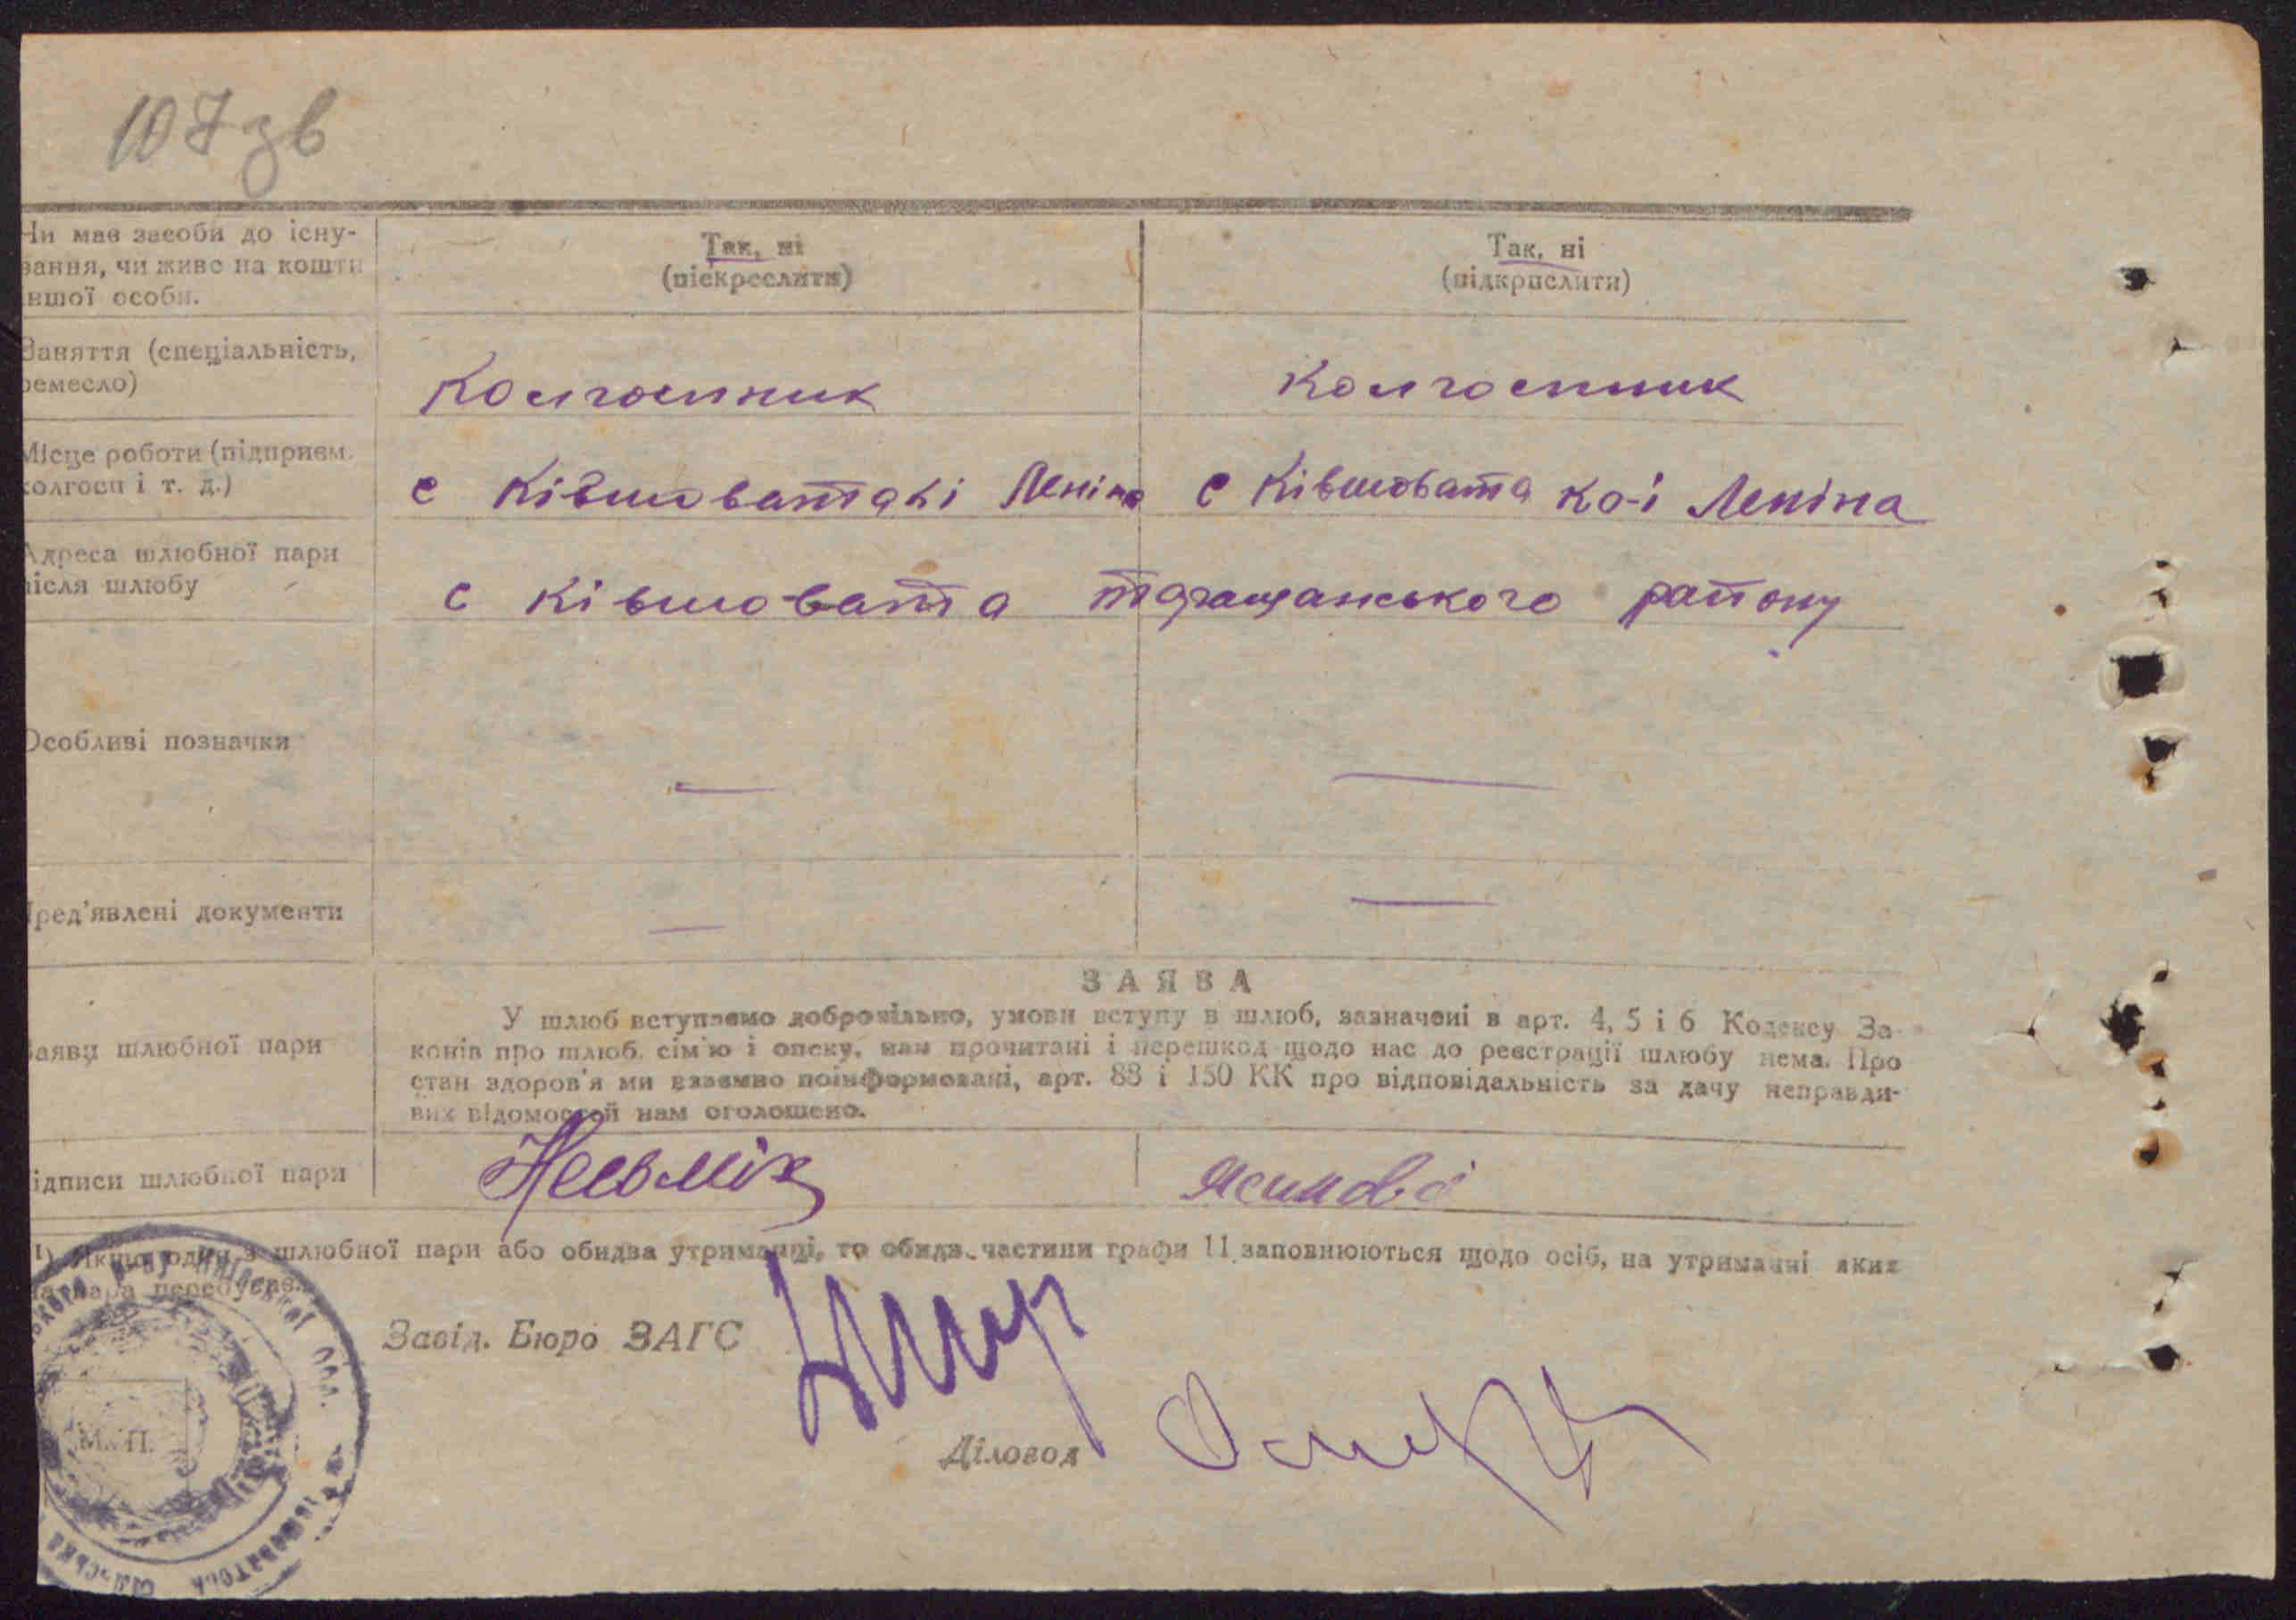 107 зв
Чи має засоби до існу-
вання, чи живе на кошти
іншої особи.
Так, ні
(піскреслити)
Так, ні
(підкрислити)
Заняття (спеціальність,
ремесло)
колгоспник
колгоспник
Місце роботи (підприєм.
колгосп і т. д.)
с Ківшовата кі Леніна
с Ківшовата ко-і Леніна
Адреса шлюбної пари
після шлюбу
с Ківшовата таращанського району
Особливі позначки
—
—
Пред'явлені документи
—
—
Заяви шлюбної пари
ЗАЯВА
У шлюб вступаємо добровільно, умови вступу в шлюб, зазначені в арт. 4, 5 і 6 Кодексу За-
конів про шлюб, сім'ю і опеку, нам прочитані і перешкод щодо нас до реєстрації шлюбу нема. Про
стан здоров'я ми взаємно поінформовані, арт. 88 і 150 КК про відповідальність за дачу неправди-
вих відомостей нам оголошено.
Підписи шлюбної пари
1) Якщо один з шлюбної пари або обидва утриманці, то обидв. частини графи 11 заповнюються щодо осіб, на утриманні яких
ця пара перебуває.
Завід. Бюро ЗАГС
М. П.
Діловод